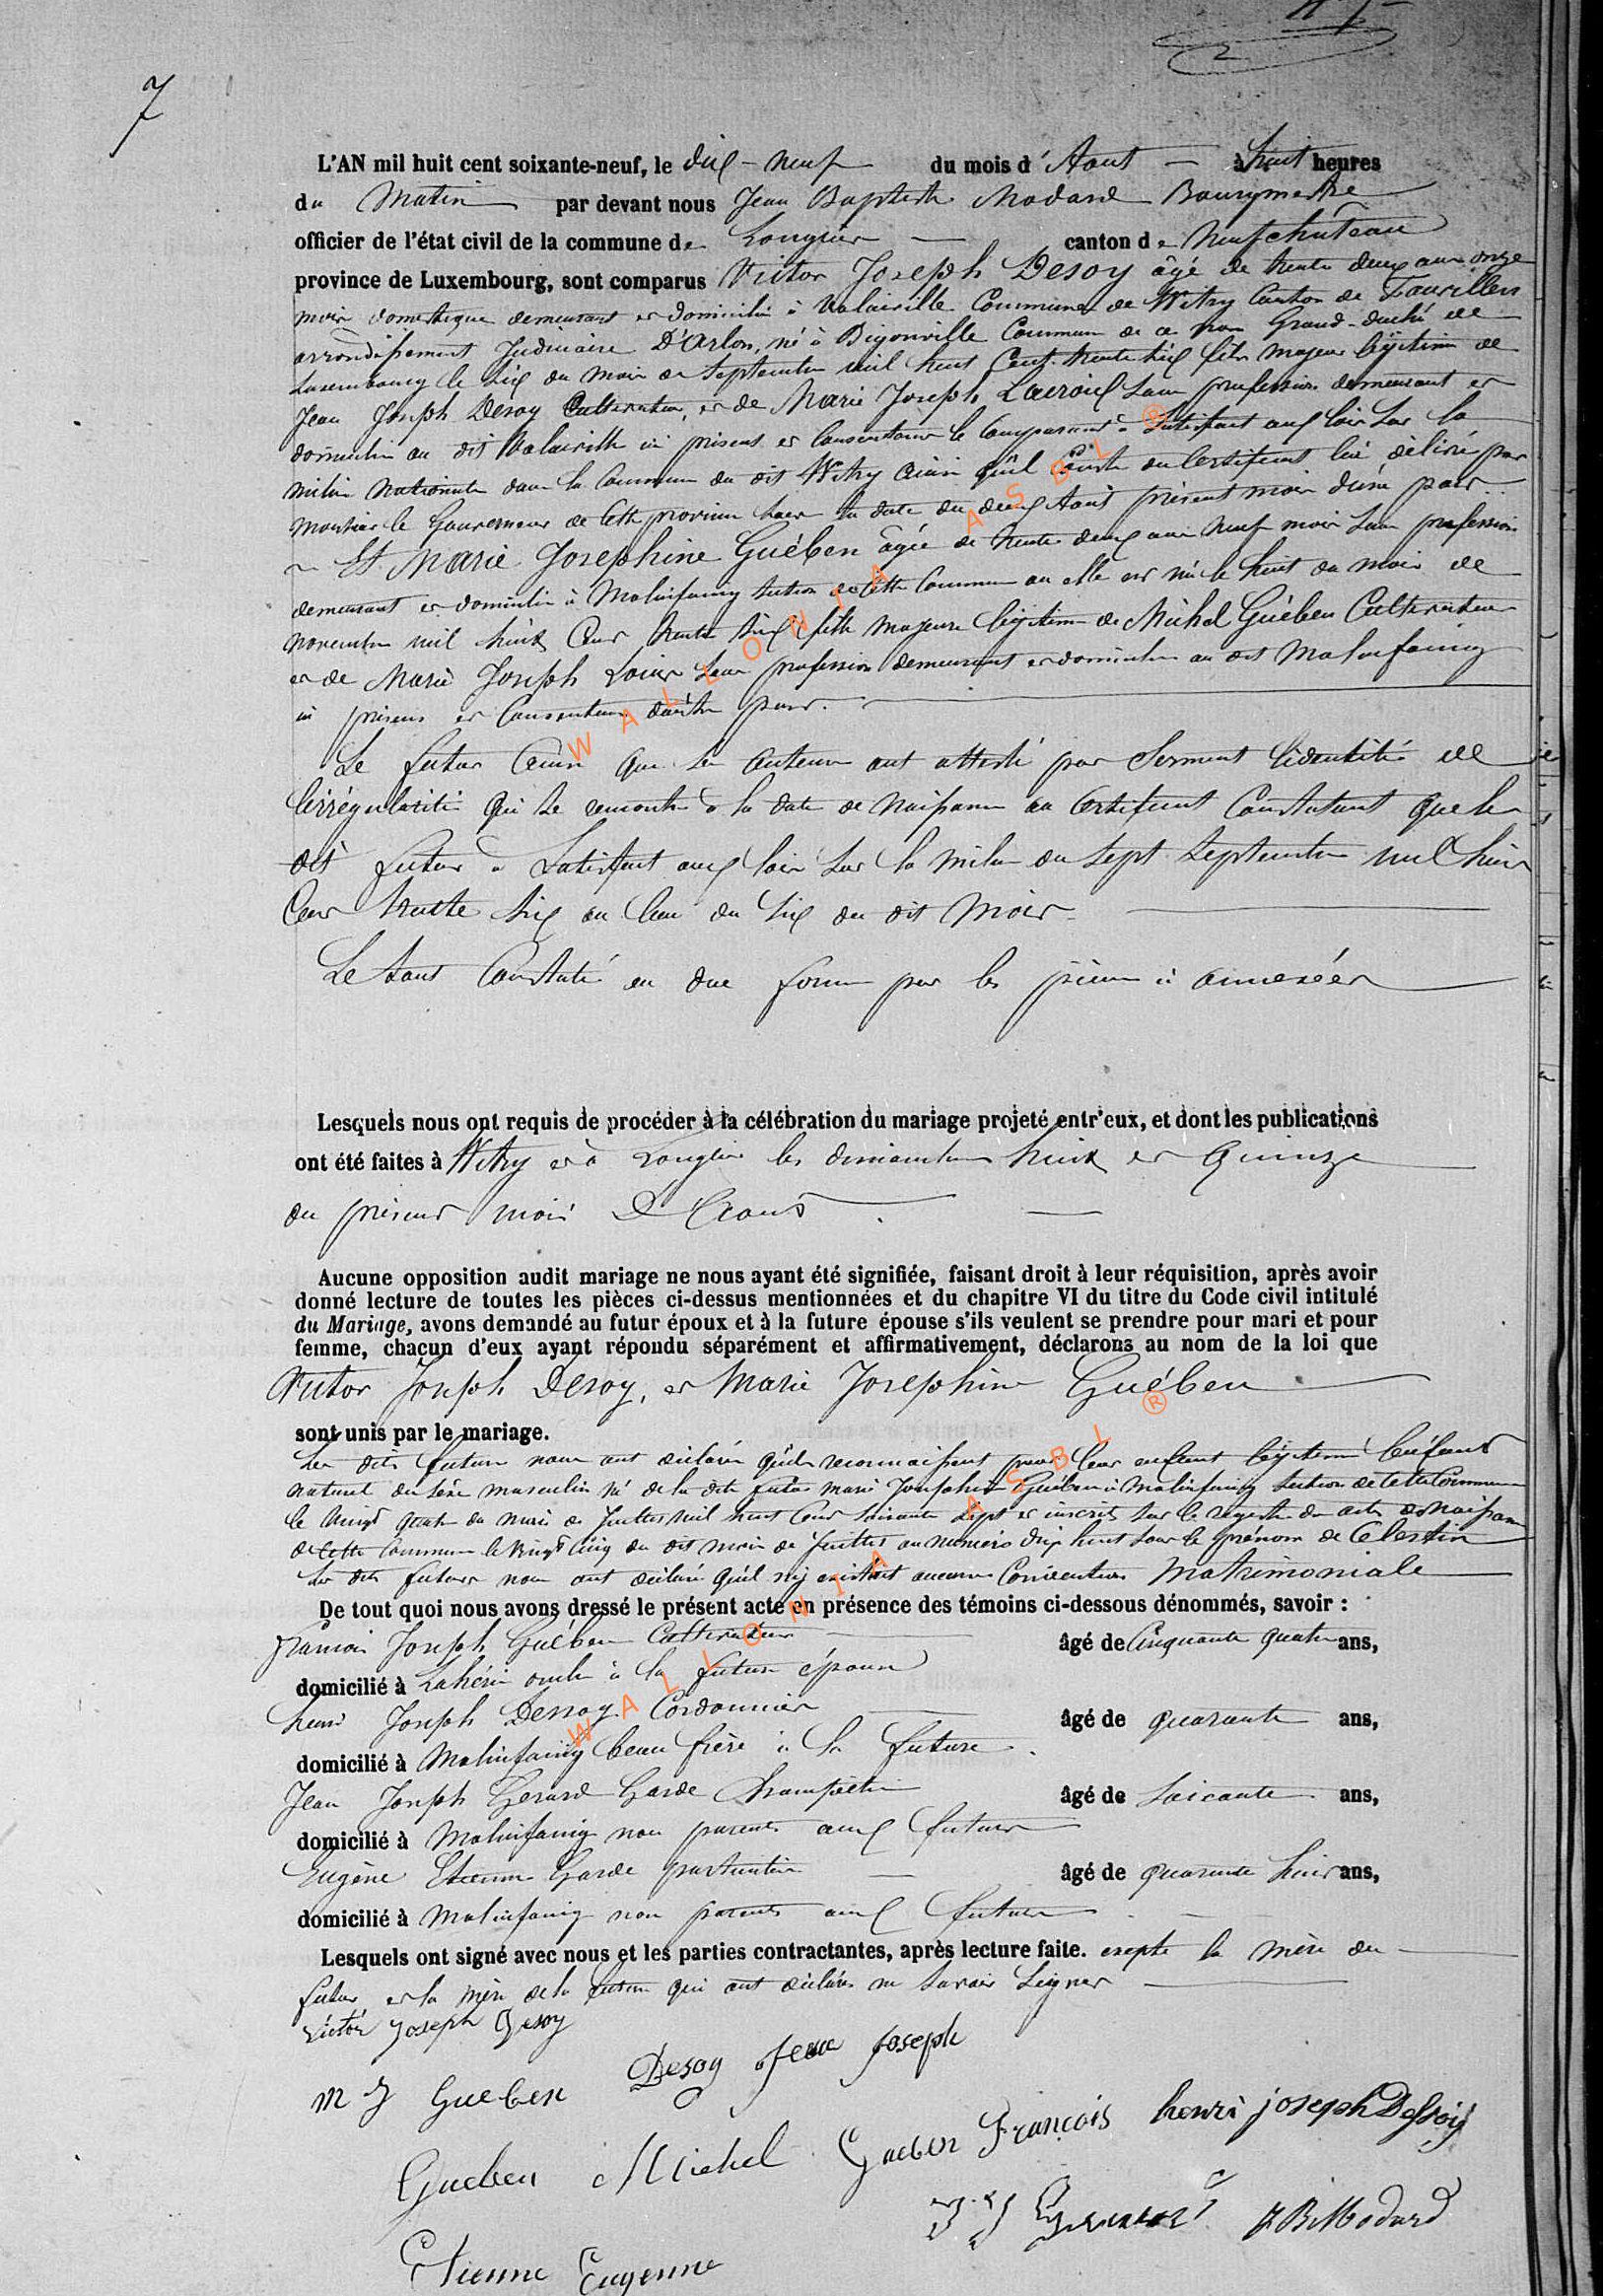 7
L'AN mil huit cent soixante-neuf, le dix-neuf du mois d'Aout à huit heures
du Matin par devant nous Jean Baptiste Modard Bourgmestre
officier de l'état civil de la commune de Longlier canton de Neufchâteau
province de Luxembourg, sont comparus Victor Joseph Desoy âgé de trente deux ans onze
mois domestique demeurant et domicilié à Volaiville Commune de Witry Canton de Fauvillers
arrondissement Judiciaire D'Arlon, né à Bigonville Commune de ce nom Grand-duché de
Luxembourg le six du mois de Septembre mil huit Cent trente six fils majeur légitime de
Jean Joseph Desoy Cultivateur, et de Marie Joseph Lacroix sans profession demeurant et
domiciliés au dit Volaiville ici présens et Consentans le Comparant a Satisfait aux lois sur la
milice nationale dans la Commune du dit Witry ainsi qu'il conste du Certificat lui délivré par
Monsieur le Gouverneur de Cette province sous la date du deux Août présent mois d'une part
Et Marie Josephine Guében âgée de trente deux ans neuf mois sans profession
demeurant et domiciliée à Molinfaing section de Cette Commune où elle est née le huit du mois de
novembre mil huit Cent trente six fille majeure légitime de Michel Guében Cultivateur
et de Marie Joseph sans profession demeurant et domiciliés au dit Molinfaing
ici présens et Consentans d'autre part.
Le futur Ainsi que les auteurs ont attesté par Serment l'identité de
l'irrégularité qui se rencontre à la date de Naissance au Certificat Constatant que le
dit futur a Satisfait aux lois sur la milice du Sept Septembre mil huit
Cent trente six au lieu du six du dit mois
Le tout Constaté en due forme par les pièces ci annexées
Lesquels nous ont requis de procéder à la célébration du mariage projeté entr'eux, et dont les publications
ont été faites à Witry et à Longlier les dimanches huit et quinze
du présent mois D'Aout
Aucune opposition audit mariage ne nous ayant été signifiée, faisant droit à leur réquisition, après avoir
donné lecture de toutes les pièces ci-dessus mentionnées et du chapitre VI du titre du Code civil intitulé
du Mariage, avons demandé au futur époux et à la future épouse s'ils veulent se prendre pour mari et pour
femme, chacun d'eux ayant répondu séparément et affirmativement, déclarons au nom de la loi que
Victor Joseph Desoy, et Marie Josephine Guében
sont unis par le mariage.
Les dits futurs nous ont déclaré qu'ils reconnaissent pour leur enfant légitime l'enfant
naturel du sexe masculin né de la dite future Marie Josephine Guében à Molinfaing section de Cette Commune
le vingt quatre du mois de Juillet mil huit Cent soixante sept et inscrit sur le registre des actes de Naissance
de Cette Commune le vingt cinq du dit mois de Juillet au numéro dix huit sous le prénom de Celestin
Les dits futurs nous ont déclaré qu'il n'y existait aucunes Conventions Matrimoniale
De tout quoi nous avons dressé le présent acte en présence des témoins ci-dessous dénommés, savoir :
François Joseph Guében Cultivateur âgé de Cinquante quatre ans,
domicilié à Lahérie oncle à la future épouse
henri Joseph Dessoy Cordonnier âgé de quarante ans,
domicilié à Molinfaing beau frère à la future.
Jean Joseph Gerard Garde Champêtre âgé de Soixante ans,
domicilié à Molinfaing non parents aux futurs
Eugène Etienne Garde particulier âgé de quarante huit ans,
domicilié à Molinfaing non parents aux futurs
Lesquels ont signé avec nous et les parties contractantes, après lecture faite. excepté la mère du
futur et la mère de la future qui ont déclaré ne savoir signer
Victor Joseph Desoy
M J Gueben Desoy Jean Joseph
Gueben Michel Gueben François henri joseph Dessoy
J J Gerard J B Modard
Etienne Eugenne
WALLONIA ASBL ®
WALLONIA ASBL ®